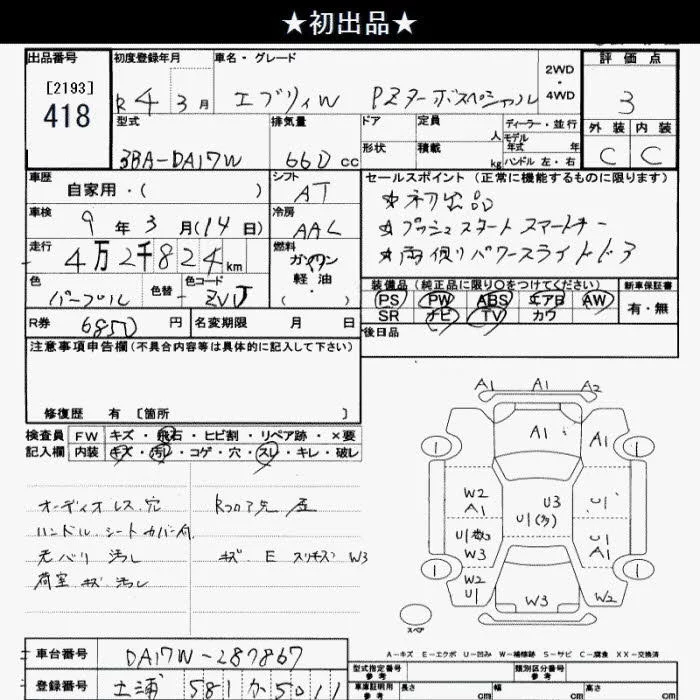 ★初出品★
出品番号 初度登録年月 車名・グレード 2WD・4WD 評価点
[2193]
418
R4 3月 エブリィW PZターボスペシャル 3
型式 排気量 ドア 定員 人 ディーラー・並行 外装 内装
3BA-DA17W 660 cc 形状 積載 kg モデル年式 年式 ハンドル 左・右 C C
車歴 シフト セールスポイント (正常に機能するものに限ります)
自家用・( ) AT ★初出品
車検 冷房 ★プッシュスタート スマートキー
9年3月(14日) AAC ★両側パワースライドドア
走行 燃料
4万2千824km ガソリン 軽油・( )
色 色替 色コード 装備品 (純正品に限り○をつけてください) 新車保証書
パープル ZVJ PS PW ABS エアB AW 有・無
SR ナビ TV カワ
R券 6850円 名変期限 月 日 後日品
注意事項申告欄(不具合内容等は具体的に記入して下さい)
修復歴 有 [箇所 ]
検査員 FW キズ・飛石・ヒビ割・リペア跡・×要
記入欄 内装 キズ・汚レ・コゲ・穴・スレ・キレ・破レ
オーディオレス 穴
ハンドル、シートカバー付
天バリ 汚レ キズ E スリキズ W3
荷室 キズ 汚レ
A1 A1 A2
A1 A1
1 1
W2 U3 U1
A1 U1(多)
U1 U1
W3 A1
1 1
W2 W2
U1 W3
スペア
A-キズ E-エクボ U-凹み W-補修跡 S-サビ C-腐食 XX-交換済
車台番号 DA17W-287867 型式指定番号 参考 類別区分番号 参考
登録番号 土浦 581 か 5011 車庫証明用 参考 長さ cm 幅 cm 高さ cm